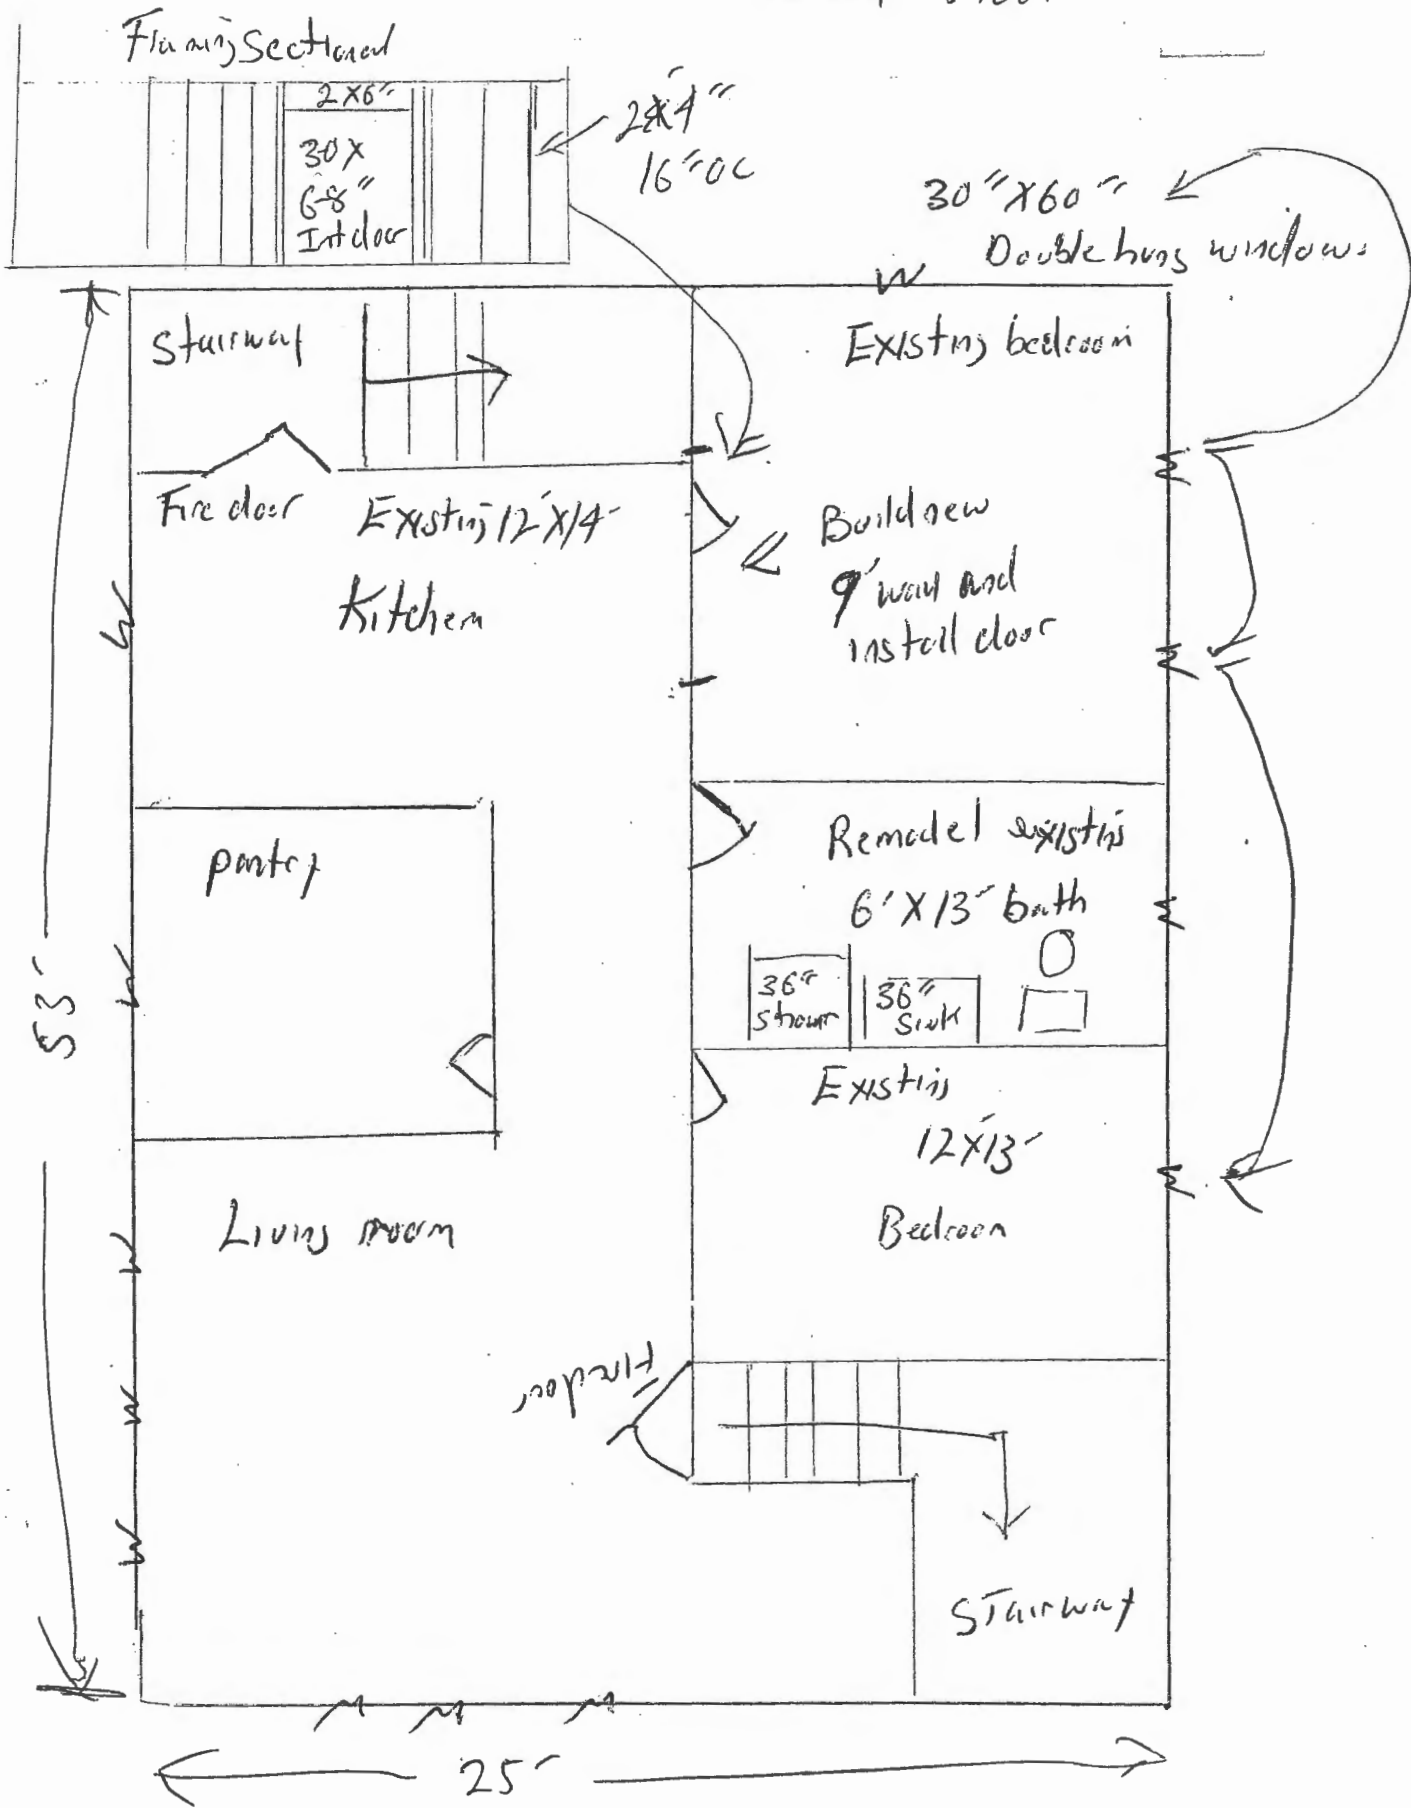 Framing Sectional
2x6"
30x
6-8"
Int door
2x4"
16" OC
30" X 60"
Double hung windows
Stairway
Existing bedroom
Fire door
Existing 12'X14'
Kitchen
Build new
9' wall and
install door
pantry
Remodel existing
6' X 13' bath
36"
Shower
36"
Sink
Existing
12X13'
Bedroom
Living room
Fire door
Stairway
53'
25'